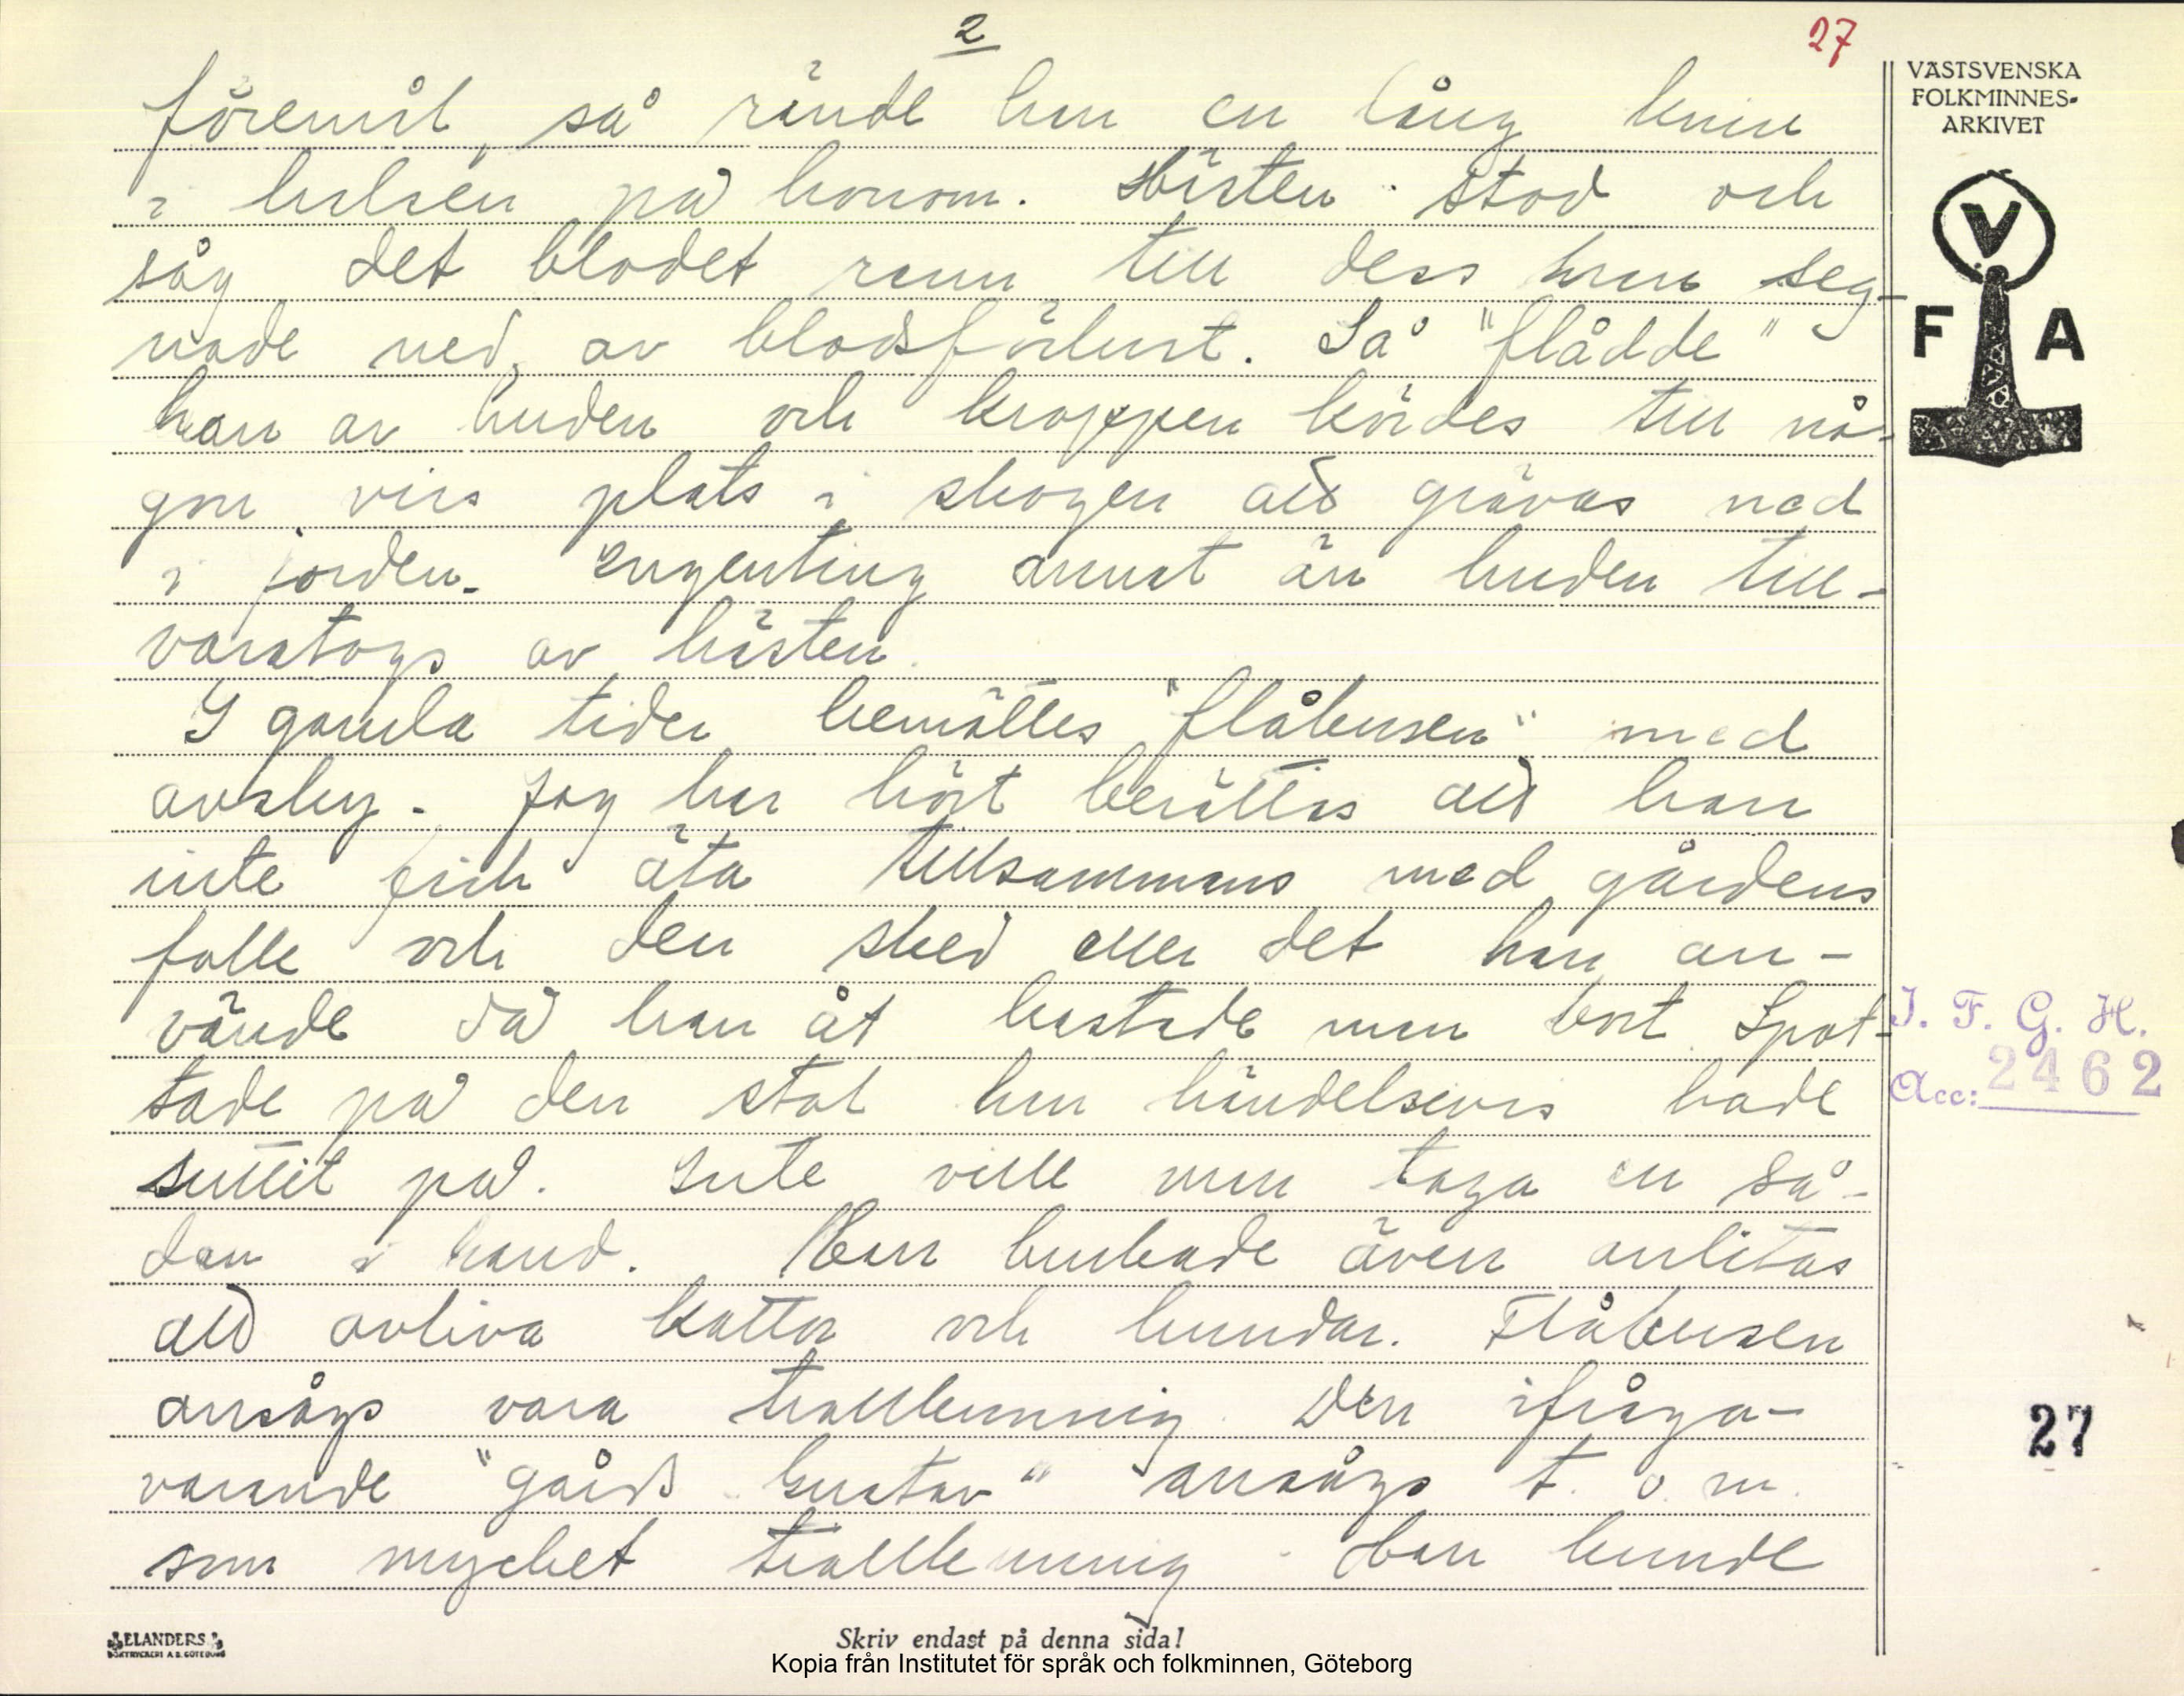 2
27
föremål, så rände han en lång kniv
i halsen på honom. Hästen stod och
såg det blodet rann till dess han seg-
nade ned, av blodsförlust. Så "flådde"
han av huden och kroppen kördes till nå-
gon viss plats i skogen att grävas ned
i jorden. Ingenting annat än huden till-
varatogs av hästen.
I gamla tider bemöttes "flåbusen" med
avsky. Jag har hört berättas att han
inte fick äta tillsammans med gårdens
folk och den sked eller det han an-
vände då han åt kastade man bort. Spot-
tade på den stol han händelsevis hade
suttit på. Inte ville man taga en så-
dan i hand. Han brukade även anlitas
att avliva kattor och hundar. Flåbusen
ansågs vara trollkunnig. Den ifråga-
varande "gårds Gustav" ansågs t. o. m.
som mycket trollkunnig. Han kunde
VÄSTSVENSKA
FOLKMINNES-
ARKIVET
V
F A
I. F. G. H.
Acc: 2462
27
ELANDERS
BOKTRYCKERI A.B. GÖTEBORG
Skriv endast på denna sida!
Kopia från Institutet för språk och folkminnen, Göteborg